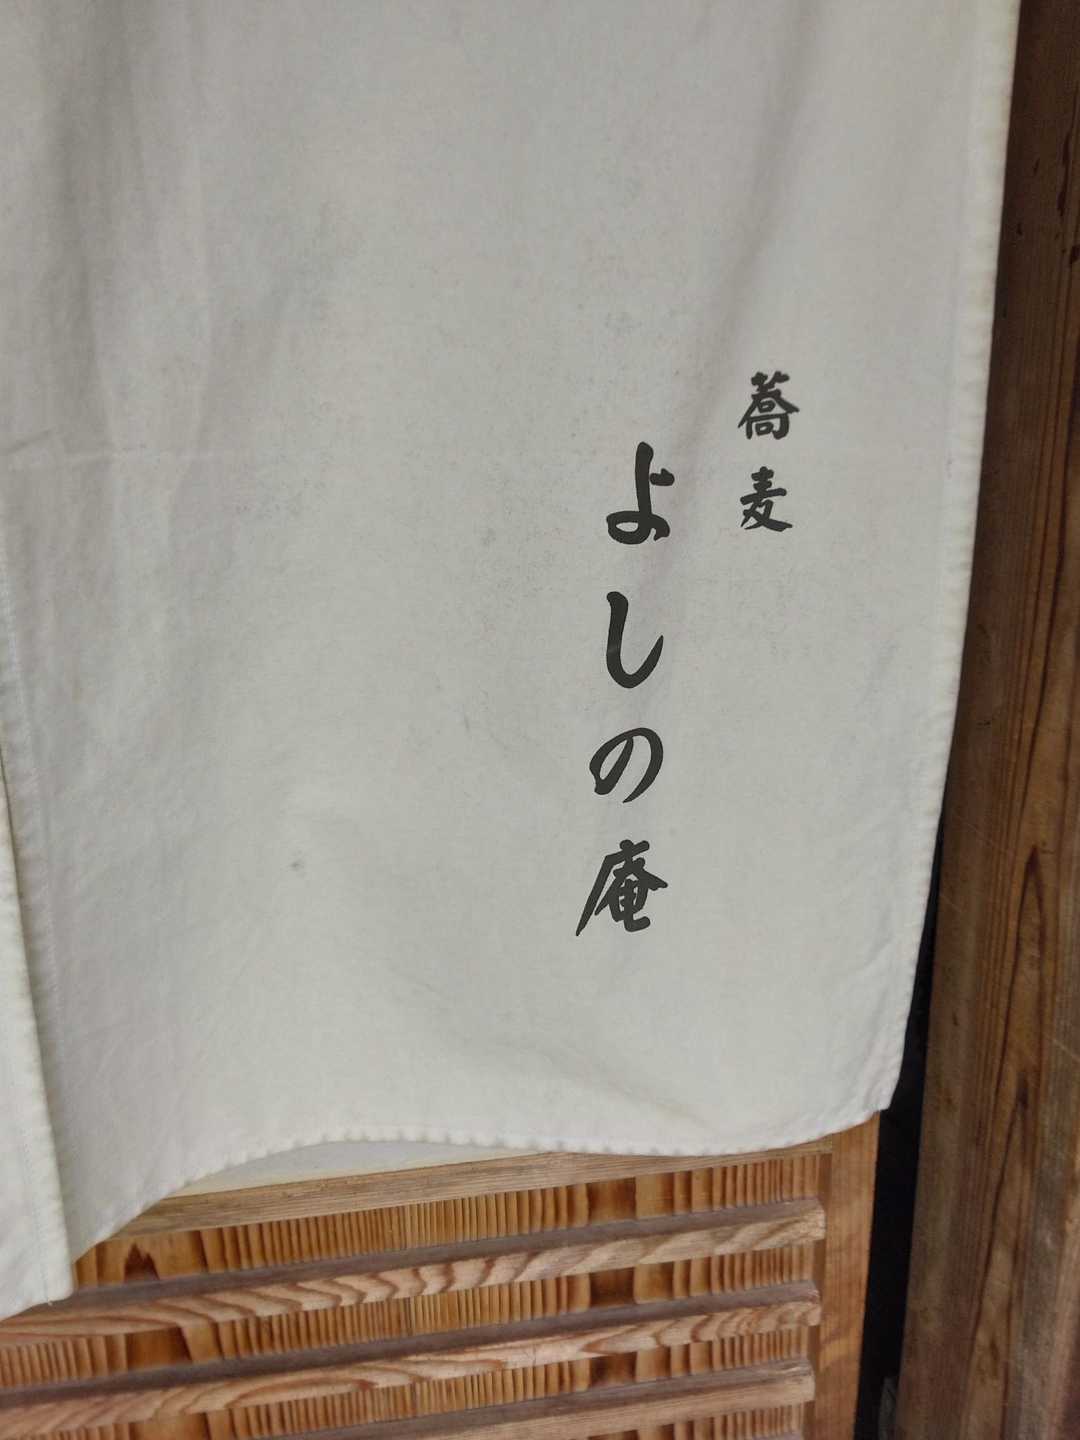 蕎麦
よしの庵